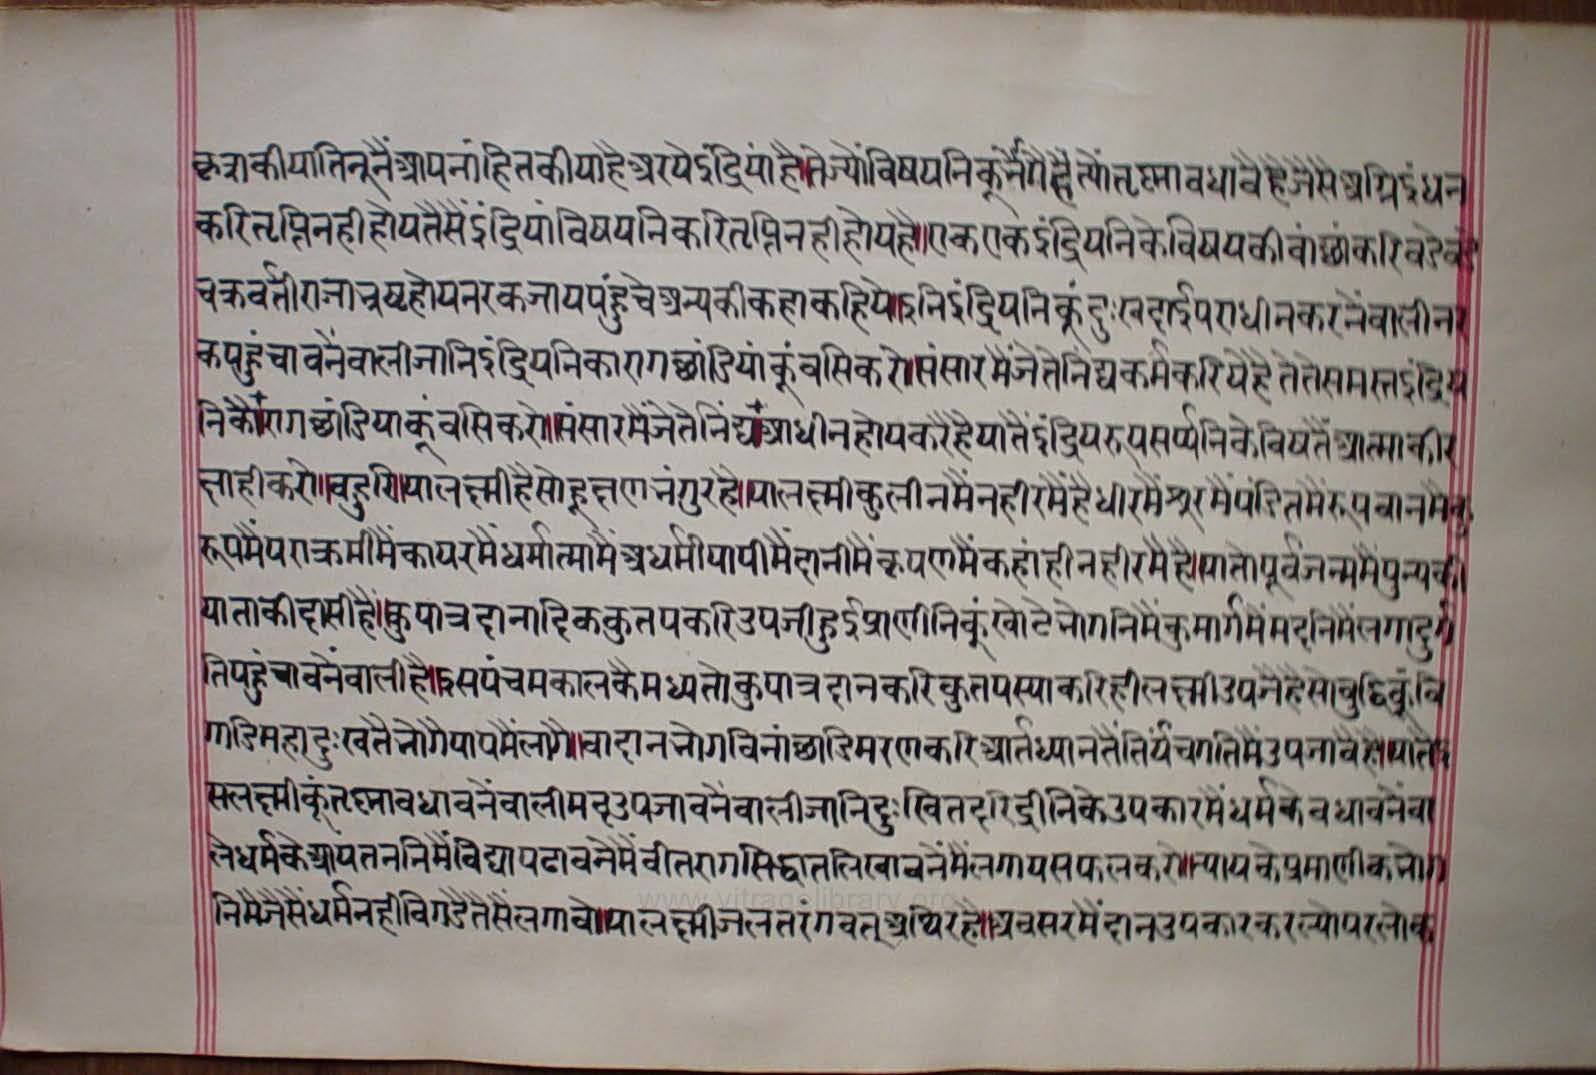 कत्राकीयातिनूनैंआपनांहितकीयाहैअरयेइंद्रियांहै।तेज्योंविषयनिकूनैगैहैत्योंतृष्नावधावैहैजैसेअग्निइंधन
करितृप्तिनहीहोयतैसैंइंद्रियांविषयनिकरितृप्तिनहीहोयहै।एकएकइंद्रियनिकेविषयकीवांछांकरिवडेवडे
चक्रवर्तीराजाभ्रष्टहोयनरकजायपहुंचेअन्यकीकहाकहिये।इनिइंद्रियनिकूंदुःखदाईपराधीनकरनैवालीनर
कपहुंचावनैवालीजानिइंद्रियनिकारागछांडियांकूंवसिकरो।संसारमैंजेतेनिंद्यकर्मकरियेहैतेतेसमस्तइंद्रिय
निकौरागछांडियाकूंवसिकरो।संसारमैंजेतेनिंद्यआधीनहोयकरैहैयातैंइंद्रियरुपसर्प्पनिकेविषतैंआत्माकीर
क्षाहीकरो।वहुरि।यालक्ष्मीहैसोहूक्षणभंगुरहै।यालक्ष्मीकुलीनमैंनहीरमैंहैधीरमैंशूरमैंपंडितमैंरुपवानमैंकु
रुपमैंपराक्रमीमैंकायरमैंधर्मात्मामैंअधर्मीपापीमैंदानीमैंकृपणमैंकहांहीनहीरमैहै।यातोपूर्वजन्ममैंपुन्यकी
याताकीदासीहै।कुपात्रदानादिककुतपकरिउपजीहुईप्राणीनिकूंखोटेभोगनिमैंकुमार्गमैंमदनिमैंलगादुर्ग
तिपहुंचावनैंवालीहै।इसपंचमकालकैमध्यतोकुपात्रदानकरिकुतपस्याकरिहीलक्ष्मीउपजैहैसोबुद्धिकूंवि
गाडिमहादुःखतैभोगैपापमैंलागै।वादानभोगविनांछाडिमरणकरिआर्तध्यानतैंतिर्यंचगतिमैंउपजावैहै।यातैइ
सलक्ष्मीकूंतृष्नावधावनेंवालीमदउपजावनेवालीजानिदुःखितदरिद्रीनिकेउपकारमैंधर्मकेवधावनेंवा
लेधर्मकेआयतननिमैंविद्यापढावनेमैंवीतरागसिद्धातलिखावनेंमैंलगायसफलकरो।न्यायकेप्रमाणीकभोग
निमैंजैसैंधर्मनहीविगडेतैसैंलगावो।यालक्ष्मीजलतरंगवत्अथिरहै।अवसरमैंदानउपकारकरल्योपरलोक
www.vitragelibrary.org